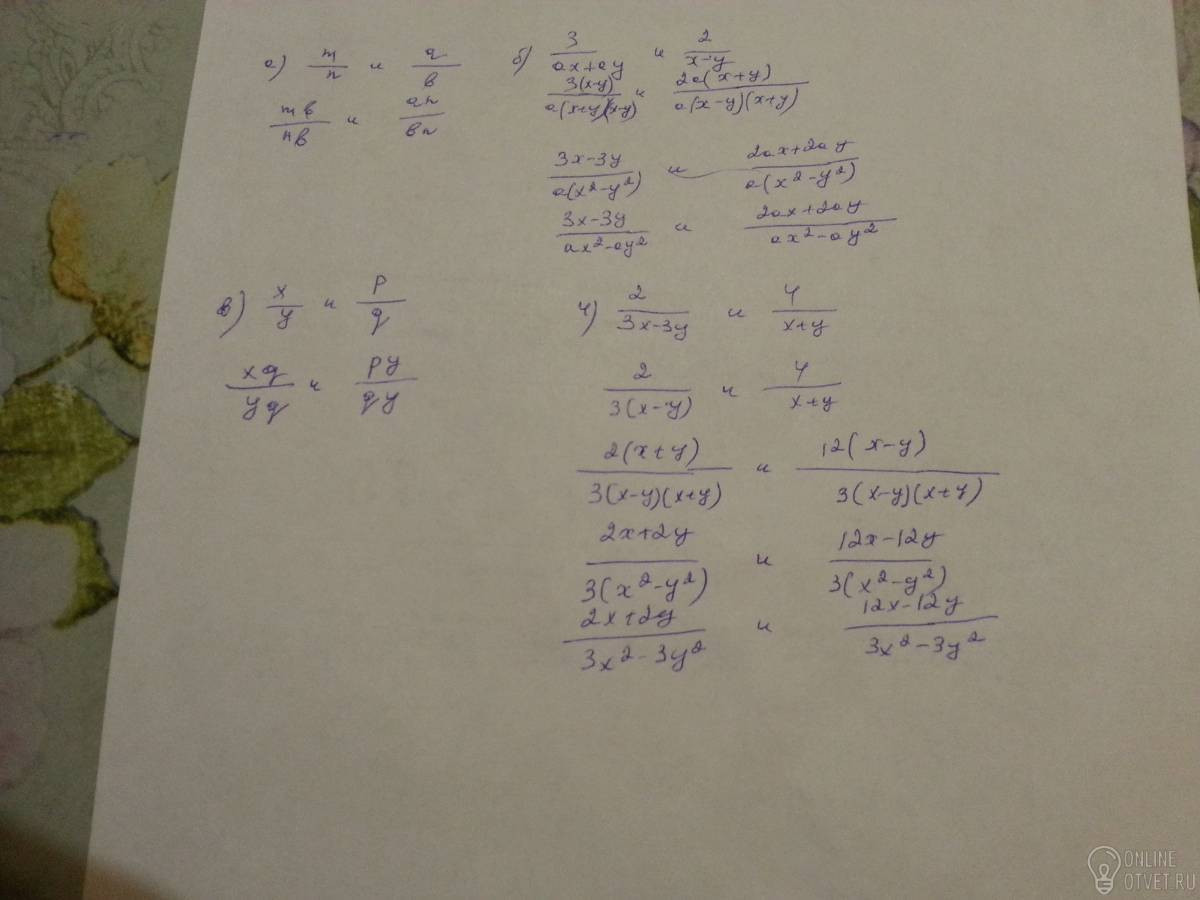 а) m/n и a/b
mb/nb и an/bn
б) 3/(ax+ay) и 2/(x-y)
3(x-y)/(a(x+y)(x-y)) и 2a(x+y)/(a(x-y)(x+y))
3x-3y/(a(x²-y²)) и 2ax+2ay/(a(x²-y²))
3x-3y/(ax²-ay²) и 2ax+2ay/(ax²-ay²)
в) x/y и p/q
xq/yq и py/qy
ч) 2/(3x-3y) и 4/(x+y)
2/(3(x-y)) и 4/(x+y)
2(x+y)/(3(x-y)(x+y)) и 12(x-y)/(3(x-y)(x+y))
2x+2y/(3(x²-y²)) и 12x-12y/(3(x²-y²))
2x+2y/(3x²-3y²) и 12x-12y/(3x²-3y²)
ONLINE
OTVET.RU